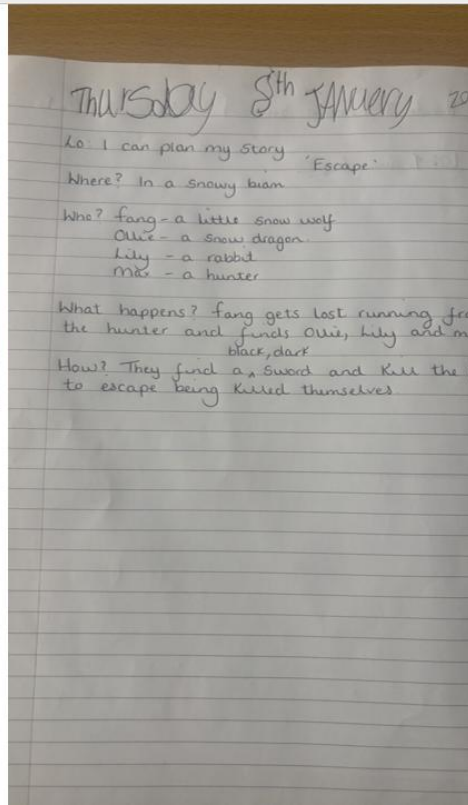 Thursday 8th JANuery 20
Lo: I can plan my story
'Escape'
Where? In a snowy biam
Who? fang - a little snow wolf
Ollie - a snow dragon.
Lily - a rabbit
max - a hunter
What happens? fang gets lost running fro
the hunter and finds Ollie, Lily and m
black, dark
How? They find a ^ sword and kill the
to escape being killed themselves